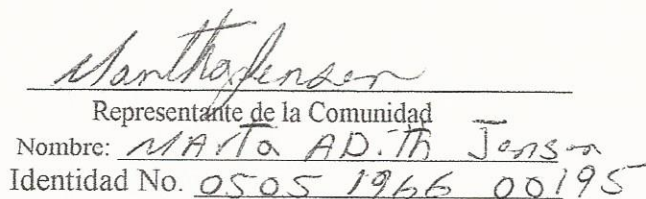 Martha Jensen
Representante de la Comunidad
Nombre: MARTa AD.Th Jensen
Identidad No. 0505 1966 00195